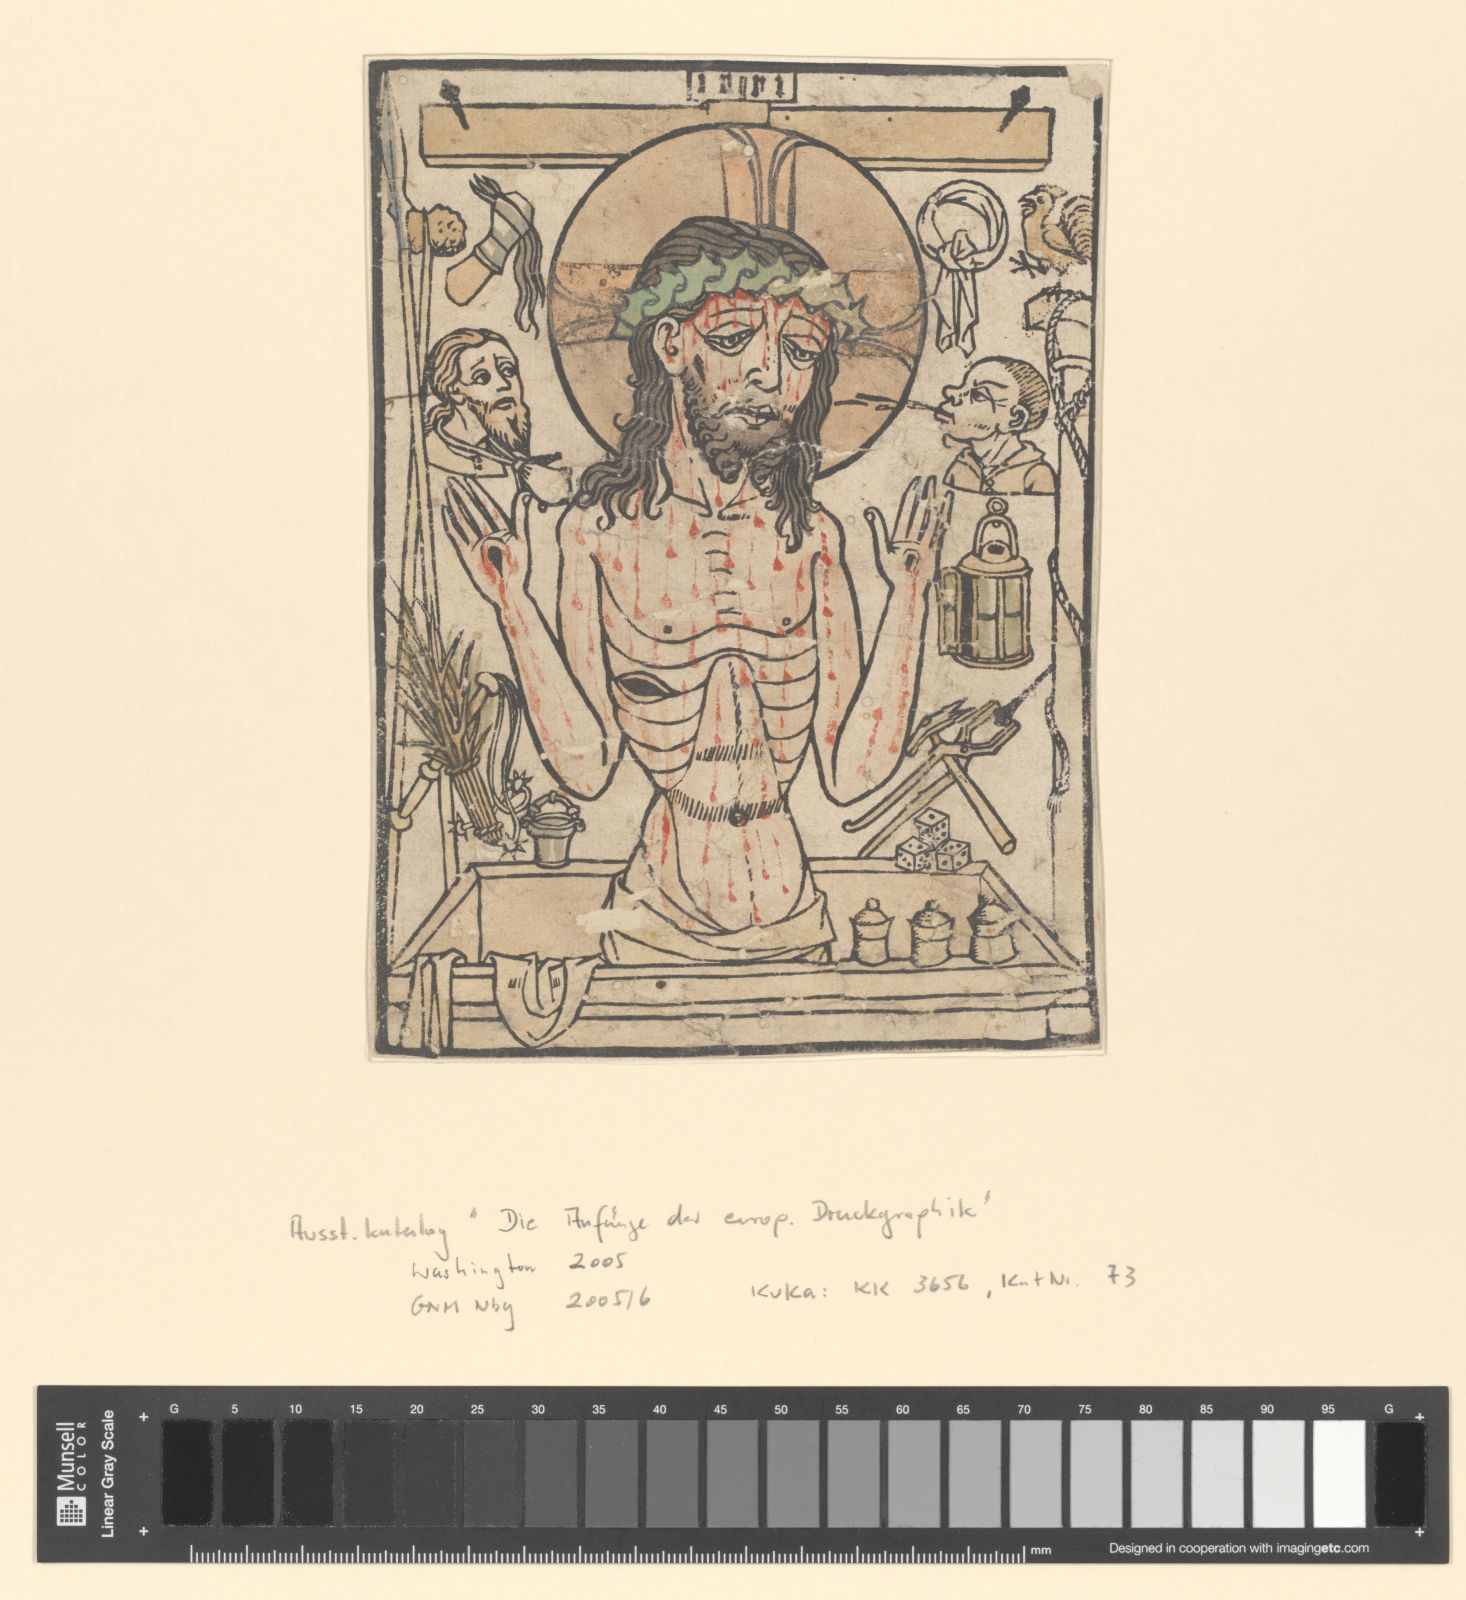 i n r i
Ausst. katalog "Die Anfänge der europ. Druckgraphik"
Washington 2005
GNM Nbg 2005/6 KuKa: KK 3656, Kat Nr. 73
Munsell
COLOR
Linear Gray Scale
G 5 10 15 20 25 30 35 40 45 50 55 60 65 70 75 80 85 90 95 G
mm
Designed in cooperation with imagingetc.com